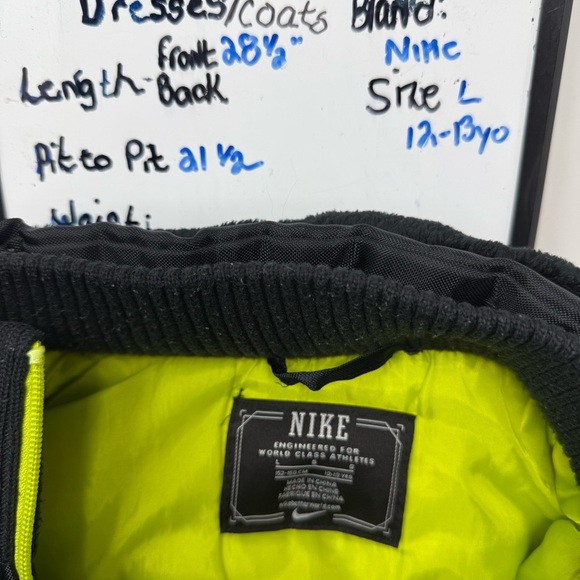 Dresses/Coats
Brand:
Front 28 1/2"
Nike
Length- Back
Size L
12-13yo
Pit to Pit 21 1/2
Waist:
NIKE
ENGINEERED FOR
WORLD CLASS ATHLETES
L
MADE IN CHINA
HECHO EN CHINA
FABRIQUE EN CHINE